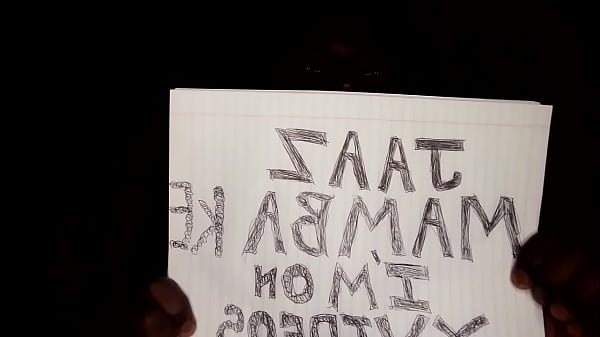 JAAZ
MAMBA KE
I'M ON
XVIDEOS